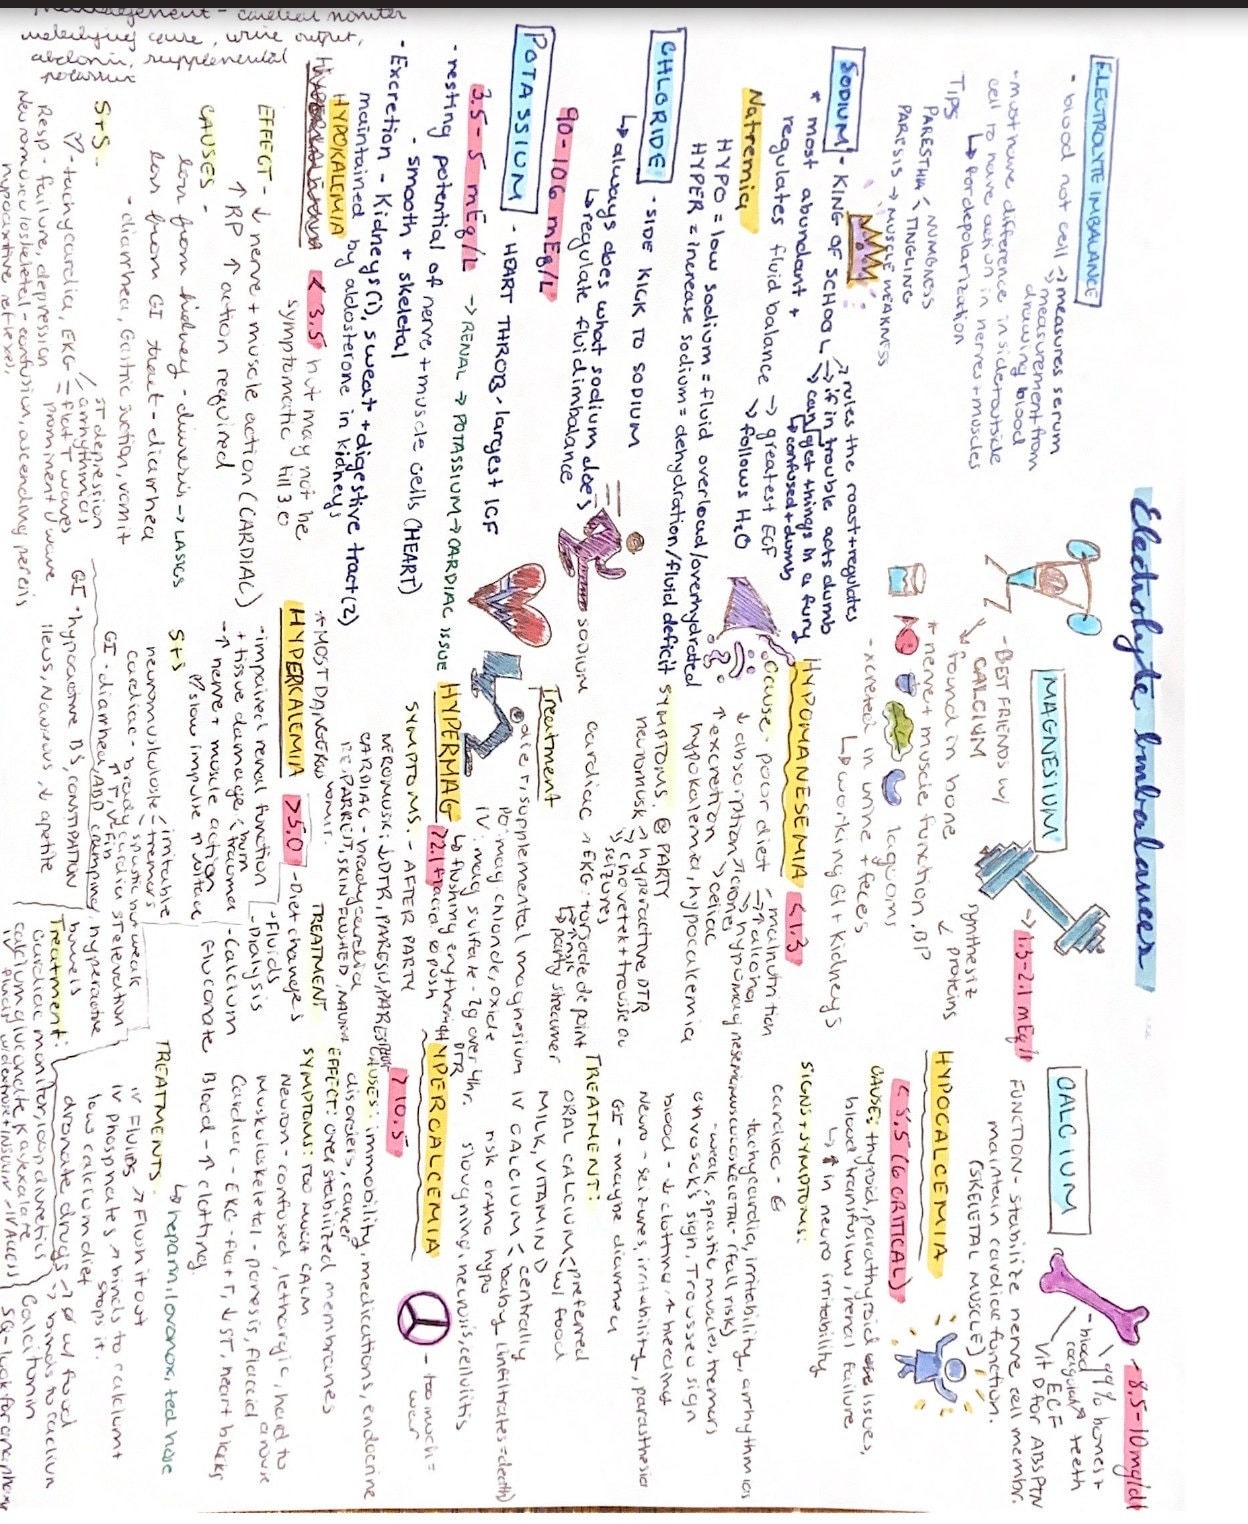 Electrolyte Imbalances
ELECTROLYTE IMBALANCE
- blood not cell → measures serum
↳ measurement from
drawing blood
- must have difference inside + outside
cell to have action in nerves + muscles
↳ for depolarization
TIPS
PARESTHIA < NUMBNESS
TINGLING
PARESIS → MUSCLE WEAKNESS
SODIUM - KING OF SCHOOL
→ rules the roast + regulates
→ if in trouble acts dumb
↳ can get things in a fury
↳ confused + dumb
* most abundant +
regulates fluid balance → greatest ECF
↳ follows H2O
Natremia
HYPO = low sodium = fluid overload/overhydrated
HYPER = increase sodium = dehydration/fluid deficit
CHLORIDE - SIDE KICK TO SODIUM
↳ always does what sodium does
↳ regulate fluid imbalance
90-106 mEq/L
sodium
POTASSIUM - HEART THROB - largest ICF
3.5-5 mEq/L → RENAL → POTASSIUM → CARDIAC ISSUE
- resting potential of nerve + muscle cells (HEART)
- smooth + skeletal
- Excretion - Kidneys (1), sweat + digestive tract (2)
maintained by aldosterone in kidneys
HYPOKALEMIA < 3.5 but may not be
symptomatic till 3.0
EFFECT - ↓ nerve + muscle action (CARDIAC)
↑ RP ↑ action required
CAUSES -
loss from kidney - diuresis → LASICS
loss from GI tract - diarrhea
- diarrhea, Gastric suction, vomit
S+S -
♡ - tachycardia, EKG = flat T waves
ST depression
arrhythmias
prominent U wave
Resp - failure, depression
Neuromusculoskeletal - confusion, ascending paresis
hypoactive reflexes,
GI - hypoactive BS, CONSTIPATION
ileus, Nauseous, ↓ apetite
Management - cardiac moniter
underlying cause, urine output,
abdomin, supplemental
potassium
* MOST DANGEROUS
HYPERKALEMIA >5.0
- impaired renal function
+ tissue damage < burn
trauma
- ↑ nerve + muscle action
♡ slow impulse
S+S
neuromuskuloske < irritable
tremors
spastic but weak
cardiac - bradycardia ST elevation
GI - diarrhea, ABD cramping, hyperactive
bowels
TREATMENT
- Diet changes
- Fluids
- Dialysis
- Calcium
Gluconate
Treatment:
cardiac monitor, loop diuretics
calcium gluconate, Kayexalate
MAGNESIUM
→ 1.3-2.1 mEq/L
- BEST FRIENDS w/
CALCIUM
↳ found in bone
* nerve + muscle function, BP
synthesiz
proteins
laguoms
- xcreted in urine + feces
↳ working GI + Kidneys
HYPOMANESEMIA <1.3
cause - poor diet - malnutrition
↓ absorption
↑ excretion
crones
celiac
hypokalemia, hypocalcemia
SYMPTOMS. @ PARTY
neuromusk → hyperactive DTR
chovstek + trousseau
seizures
cardiac → EKG - torsade de point
party streamer
Treatment
diet, supplemental magnesium
PO: mag chloride, oxide
IV: mag sulfate - 2g over 4hr.
HYPERMAG >2.1
↳ flushing
SYMPTOMS. - AFTER PARTY
NEROMUSK: ↓ DTR, PARESIS, PARESTHIA
CARDIAC - bradycardia
SKIN FLUSHED, NAUSEA
vomit.
CALCIUM
- 8.5-10 mg/dl
- 99% bones +
teeth
- blood
coagulat
ECF
Vit D for ABSPTN
FUNCTION - stabilize nerve cell membr.
maintain cardiac function.
(SKELETAL MUSCLE)
HYPOCALCEMIA
< 8.5 (6 CRITICAL)
CAUSE: thyroid, parathyroid issues,
blood transfusions, renal failure
↳ ↑ in neuro irritability
SIGNS + SYMPTOMS:
cardiac -
tachycardia, irritability, arrhythmias
MUSCUOSKELETAL - (fall risk)
- weak, spastic muscles, tremors
chvoseks sign. Trousseu sign
blood - ↓ clotting, ↑ bleeding
Neuro - seizures, irritability, parasthesia
GI - maybe diarrhea
TREATMENT:
ORAL CALCIUM < preferred
w/ food
MILK, VITAMIN D
IV CALCIUM < centrally
baby (infiltrates = death)
risk ortho hypo
sloughing, necrosis, cellulitis
HYPERCALCEMIA
- too much =
war
>10.5
CAUSES: immobility, medications, endocrine
disorders, cancer
EFFECT: over stabilized membranes
SYMPTOMS: TOO MUCH CALM
Neuron - confused, lethargic, hard to
arouse
Muskuloskeletal - paresis, flaccid
Cardiac - EKG - flat T, ↓ ST, heart blocks
Blood - ↑ clotting.
↳ heparin, lovonox, ted hose
TREATMENTS.
IV FLUIDS → Flush it out
IV phosphates → binds to calcium +
stops it.
low calcium diet
dronate drugs → ∅ w/ food
binds to calcium
Calcitonin
SQ - look for anaphlax